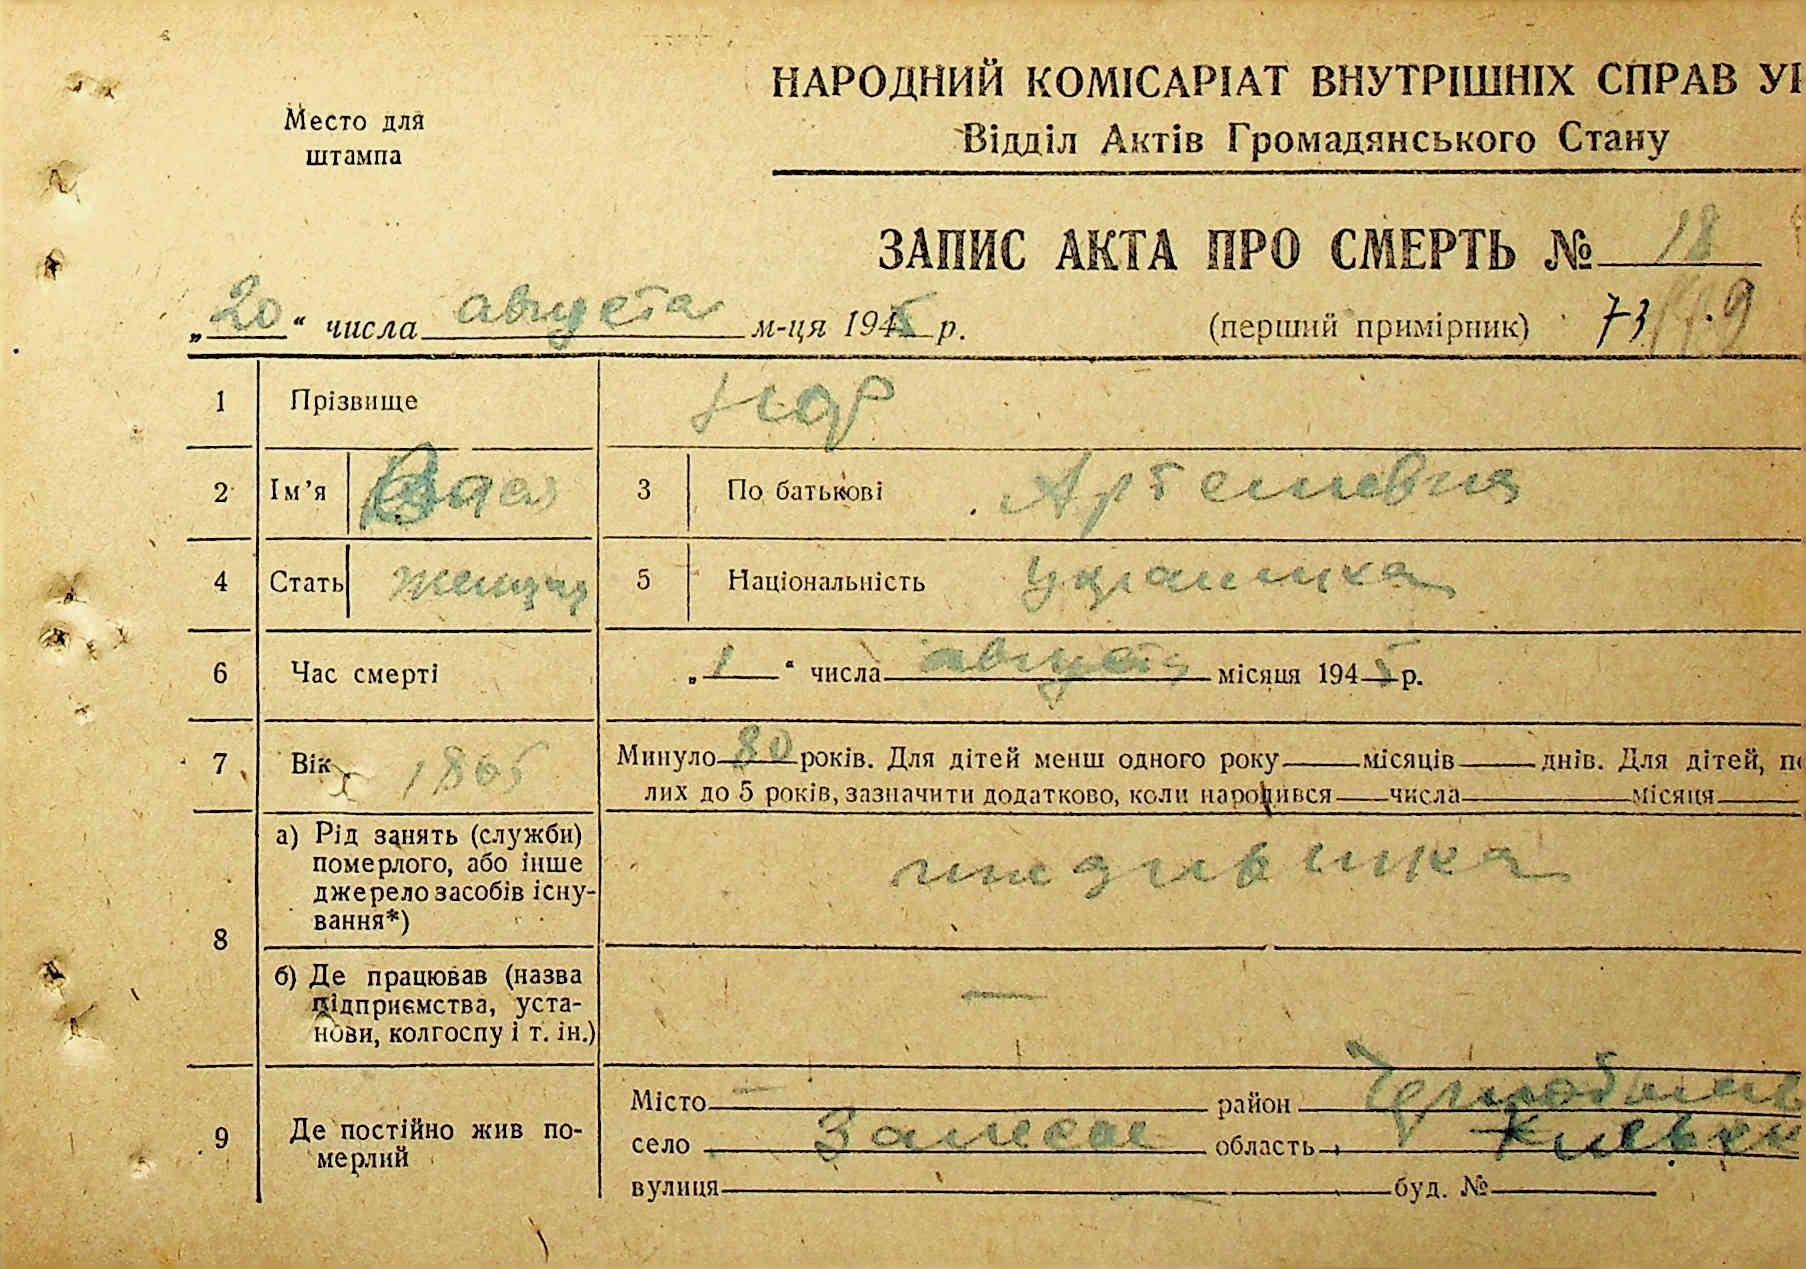 НАРОДНИЙ КОМІСАРІАТ ВНУТРІШНІХ СПРАВ
Відділ Актів Громадянського Стану
Место для
штампа
ЗАПИС АКТА ПРО СМЕРТЬ № 18
„20“ числа августа м-ця 1945 р.
(перший примірник) 73
1 Прізвище
2 Ім’я 3 По батькові Артемевна
4 Стать женщ 5 Національність украинка
6 Час смерті „1“ числа августа місяця 1945 р.
7 Вік 1865 Минуло 80 років. Для дітей менш одного року місяців днів. Для дітей,
лих до 5 років, зазначити додатково, коли народився числа місяця
8 а) Рід занять (служби)
померлого, або інше
джерело засобів існу-
вання*)
иждивенка
б) Де працював (назва
підприємства, уста-
нови, колгоспу і т. ін.)
—
9 Де постійно жив по-
мерлий
Місто — район Чернобыль
село Залесье область Киевск
вулиця — буд. №